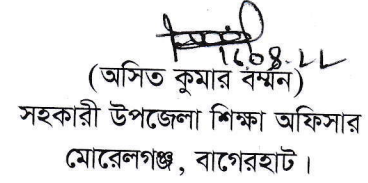 (অসিত কুমার বর্ম্মন)
সহকারী উপজেলা শিক্ষা অফিসার
মোরেলগঞ্জ, বাগেরহাট।